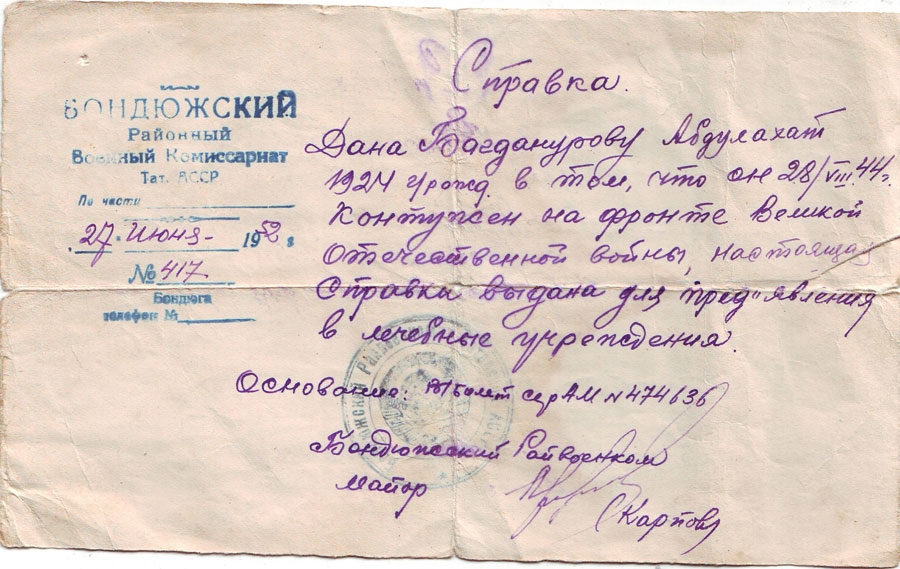 БОНДЮЖСКИЙ
Районный
Военный Комиссариат
Тат. АССР
По части
27 Июня 1952 г
№ 417
Бондюга
телефон №
Справка.
Дана Багданурову Абдулахат
1924 г рожд. в том, что он 28/VIII.44г.
Контужен на фронте Великой
Отечественной войны, настоящая
Справка выдана для пред'явления
в лечебные учреждения.
Основание: в/билет сер АМ № 474636
Бондюжский Райвоенком
Майор
(Карпов)